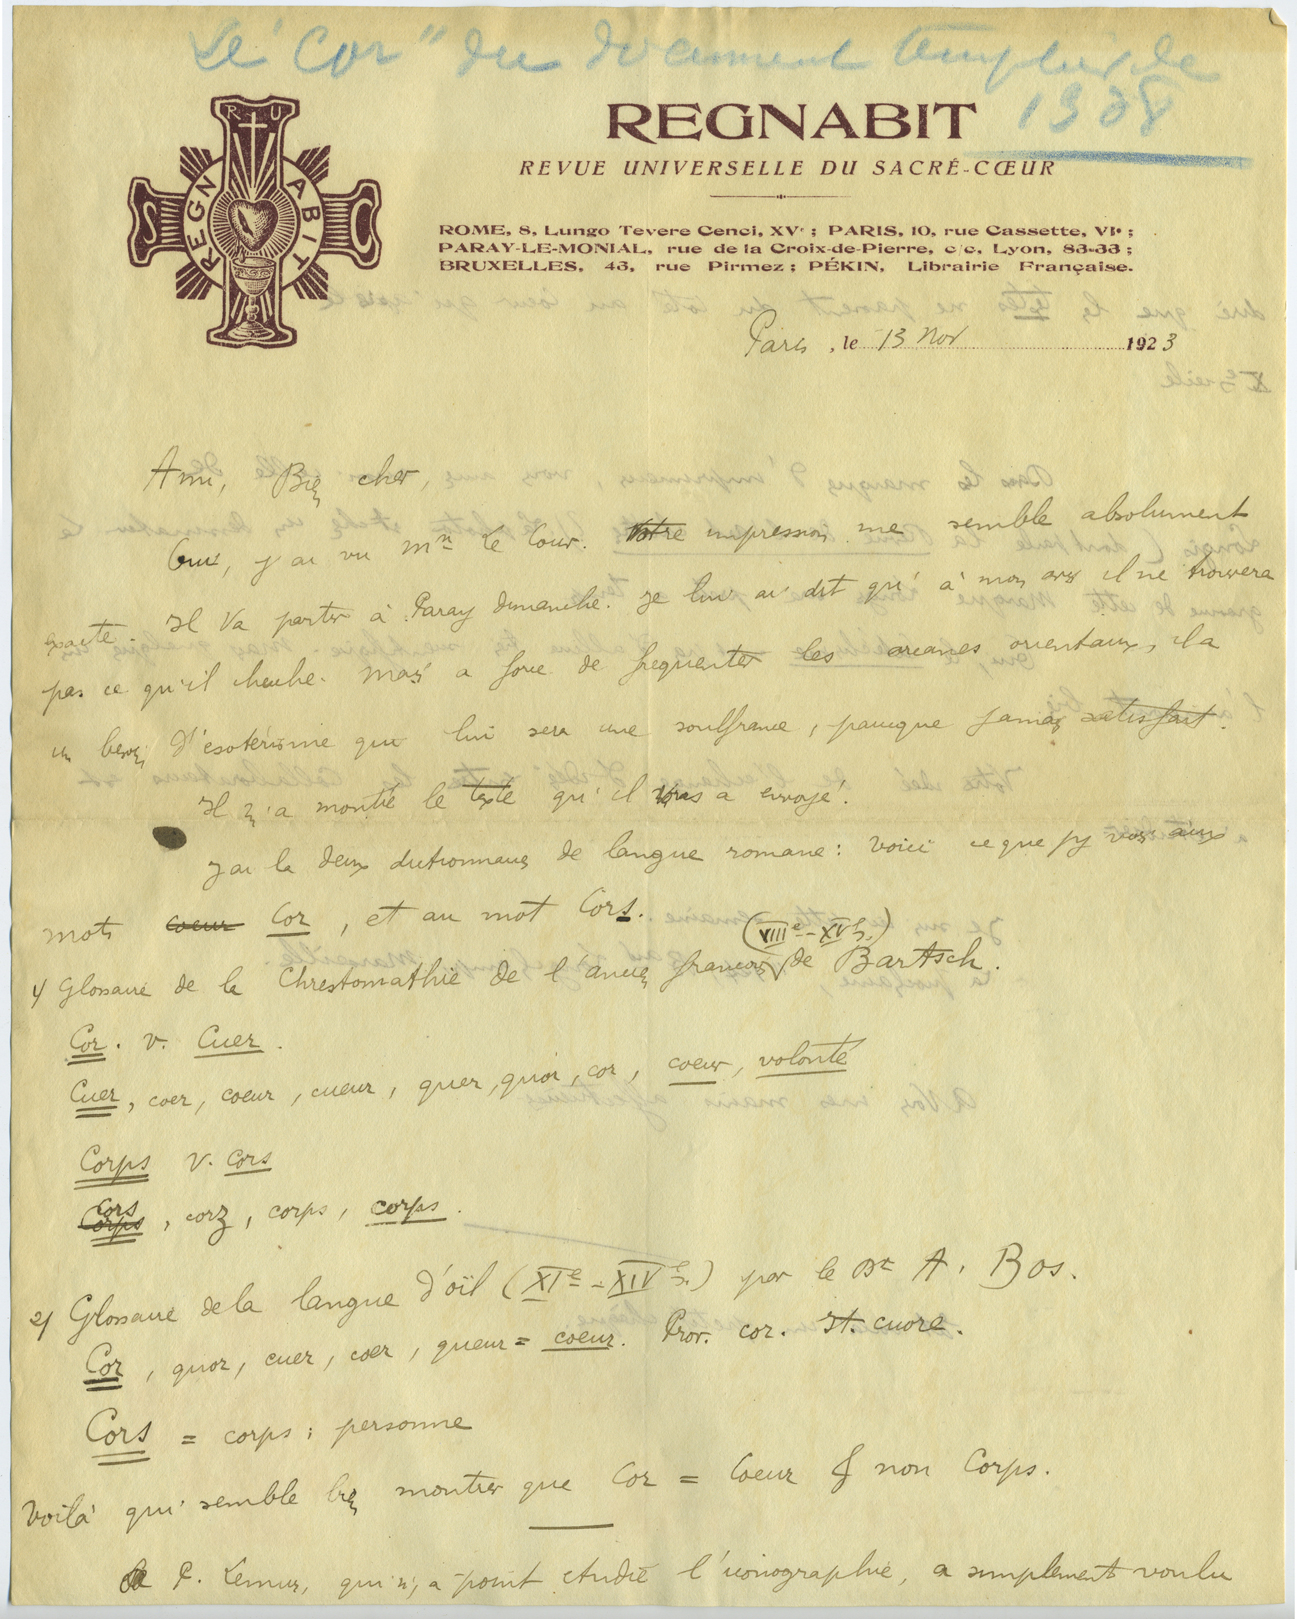 Le "Cor" du document templier de
1308
R U
S REGNABIT C
REGNABIT
REVUE UNIVERSELLE DU SACRÉ-CŒUR
ROME, 8, Lungo Tevere Cenci, XVe ; PARIS, 10, rue Cassette, VIe ;
PARAY-LE-MONIAL, rue de la Croix-de-Pierre, c/c. Lyon, 83-33 ;
BRUXELLES, 43, rue Pirmez ; PÉKIN, Librairie Française.
Paris, le 13 Nov 1923
Ami, Bien cher,
Oui, j'ai vu Mr Le Cour. Votre impression me semble absolument
exacte. Il va partir à Paray dimanche. Je lui ai dit qu'à mon avis il ne trouvera
pas ce qu'il cherche. Mais a force de frequenter les arcanes orientaux, il a
un besoin d'esotérisme qui lui sera une souffrance, puisque jamais satisfait.
Il m'a montré le texte qu'il vous a envoyé.
J'ai là deux dictionnaires de langue romane : voici ce que j'y vois aux
mots coeur Cor, et au mot Cors.
(VIIIe - XVe s.)
1/ Glossaire de la Chrestomathie de l'ancien français de Bartsch.
Cor. v. Cuer.
Cuer, coer, coeur, cueur, quer, quor, cor, coeur, volonté
Corps v. cors
Cors
Corps, corz, corps, corps.
2/ Glossaire de la langue d'oïl (XIe - XIVe s.) par le Dr A. Bos.
Cor, quor, cuer, coer, queur = coeur. Prov. cor. It. cuore.
Cors = corps ; personne
Voilà qui semble bien montrer que Cor = Coeur & non Corps.
Le P. Lemius, qui n'a point étudié l'iconographie, a simplement voulu